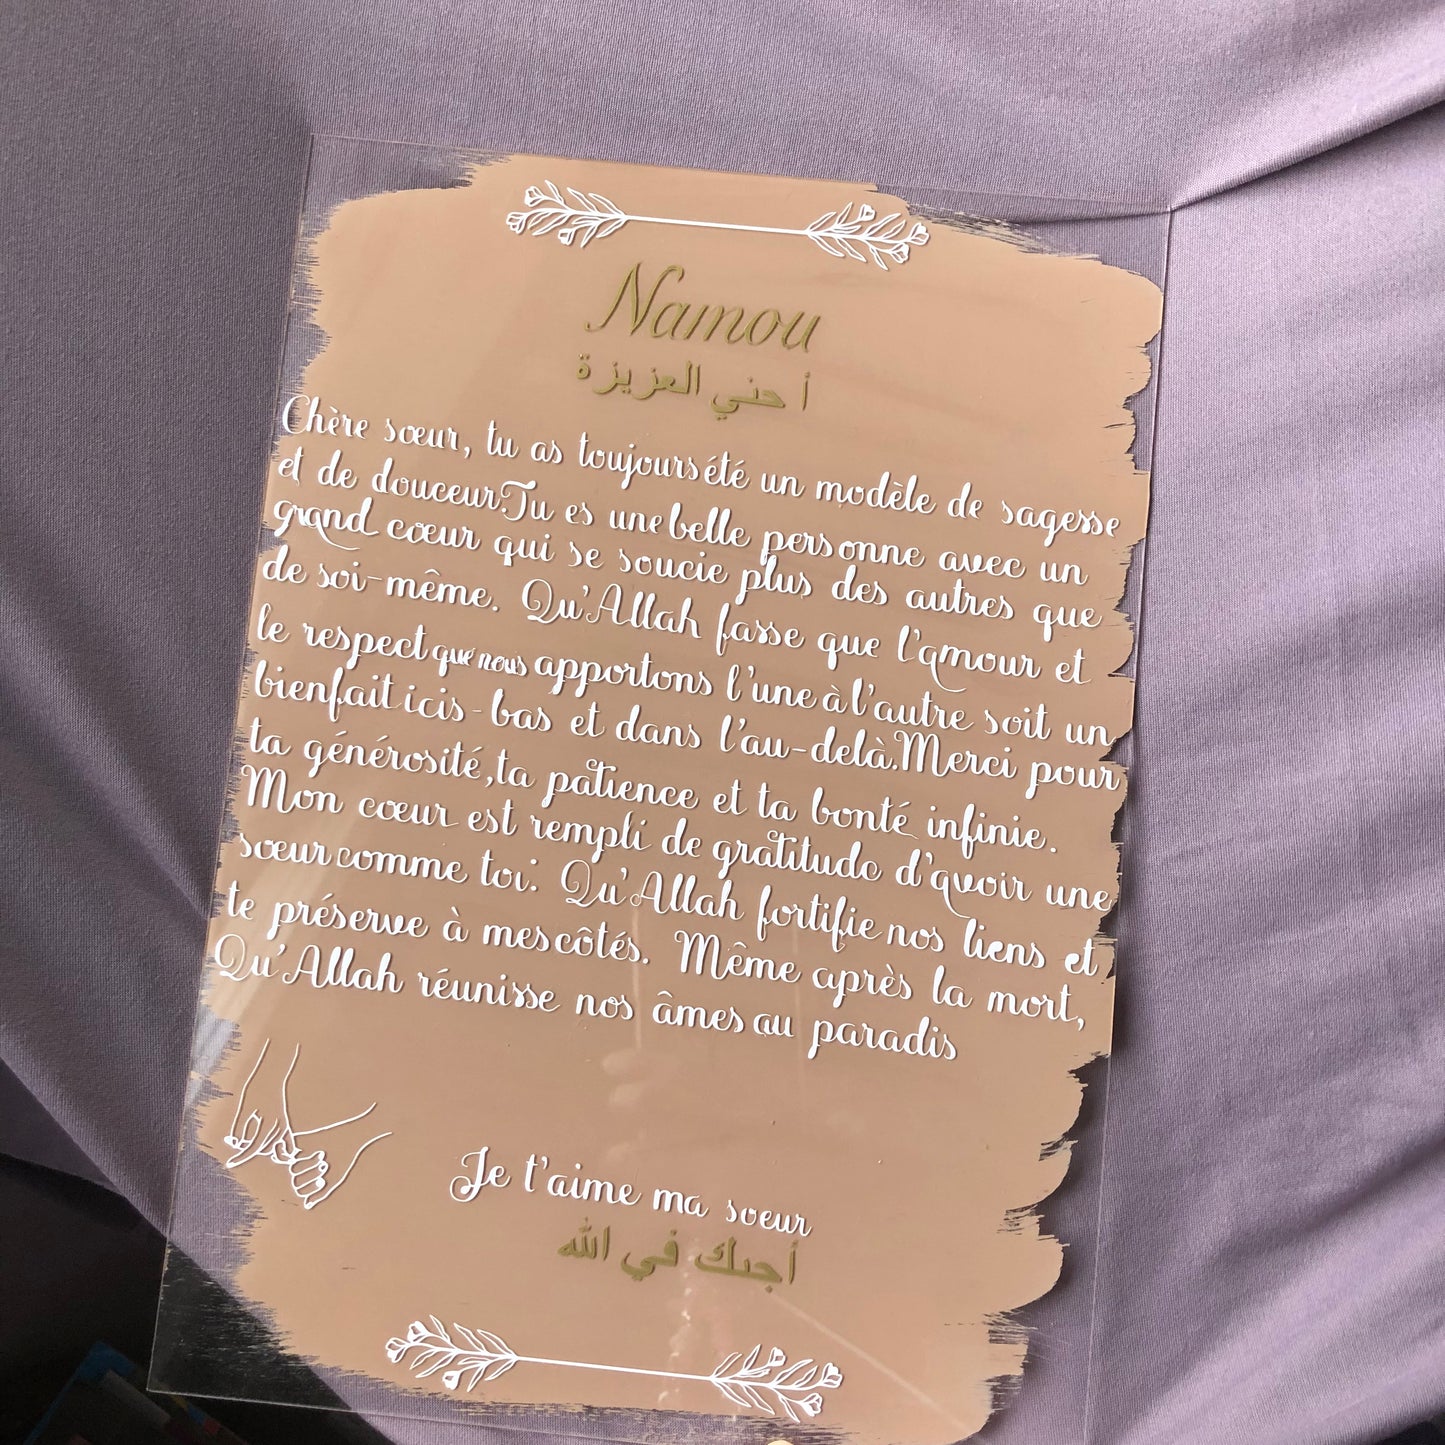 Namou
أ حني العزيزة
Chère sœur, tu as toujours été un modèle de sagesse
et de douceur.Tu es une belle personne avec un
grand cœur qui se soucie plus des autres que
de soi-même. Qu'Allah fasse que l'amour et
le respect que nous apportons l'une à l'autre soit un
bienfait icis-bas et dans l'au-delà.Merci pour
ta générosité,ta patience et ta bonté infinie.
Mon cœur est rempli de gratitude d'avoir une
sœur comme toi. Qu'Allah fortifie nos liens et
te préserve à mes côtés. Même après la mort,
Qu'Allah réunisse nos âmes au paradis
Je t'aime ma soeur
أحبك في الله